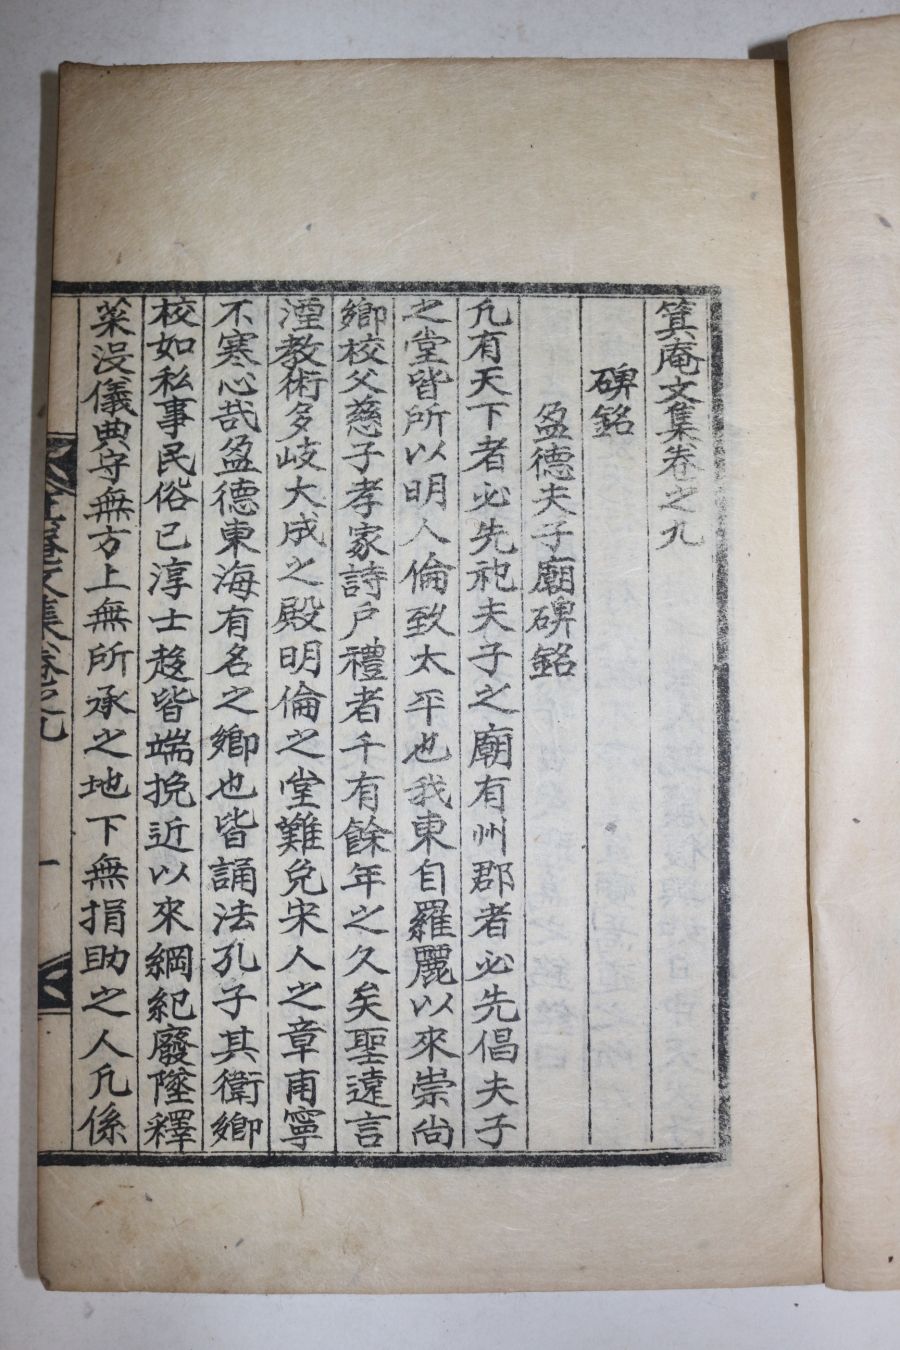 箕庵文集卷之九
碑銘
盈德夫子廟碑銘
凡有天下者必先祀夫子之廟有州郡者必先倡夫子
之堂皆所以明人倫致太平也我東自羅麗以來崇尙
鄕校父慈子孝家詩戶禮者千有餘年之久矣聖遠言
湮教術多岐大成之殿明倫之堂難免宋人之章甫寧
不寒心哉盈德東海有名之鄕也皆誦法孔子其衛鄕
校如私事民俗已淳士趍皆端挽近以來綱紀廢墜釋
菜沒儀典守無方上無所承之地下無捐助之人凡係
箕庵文集卷之九
一